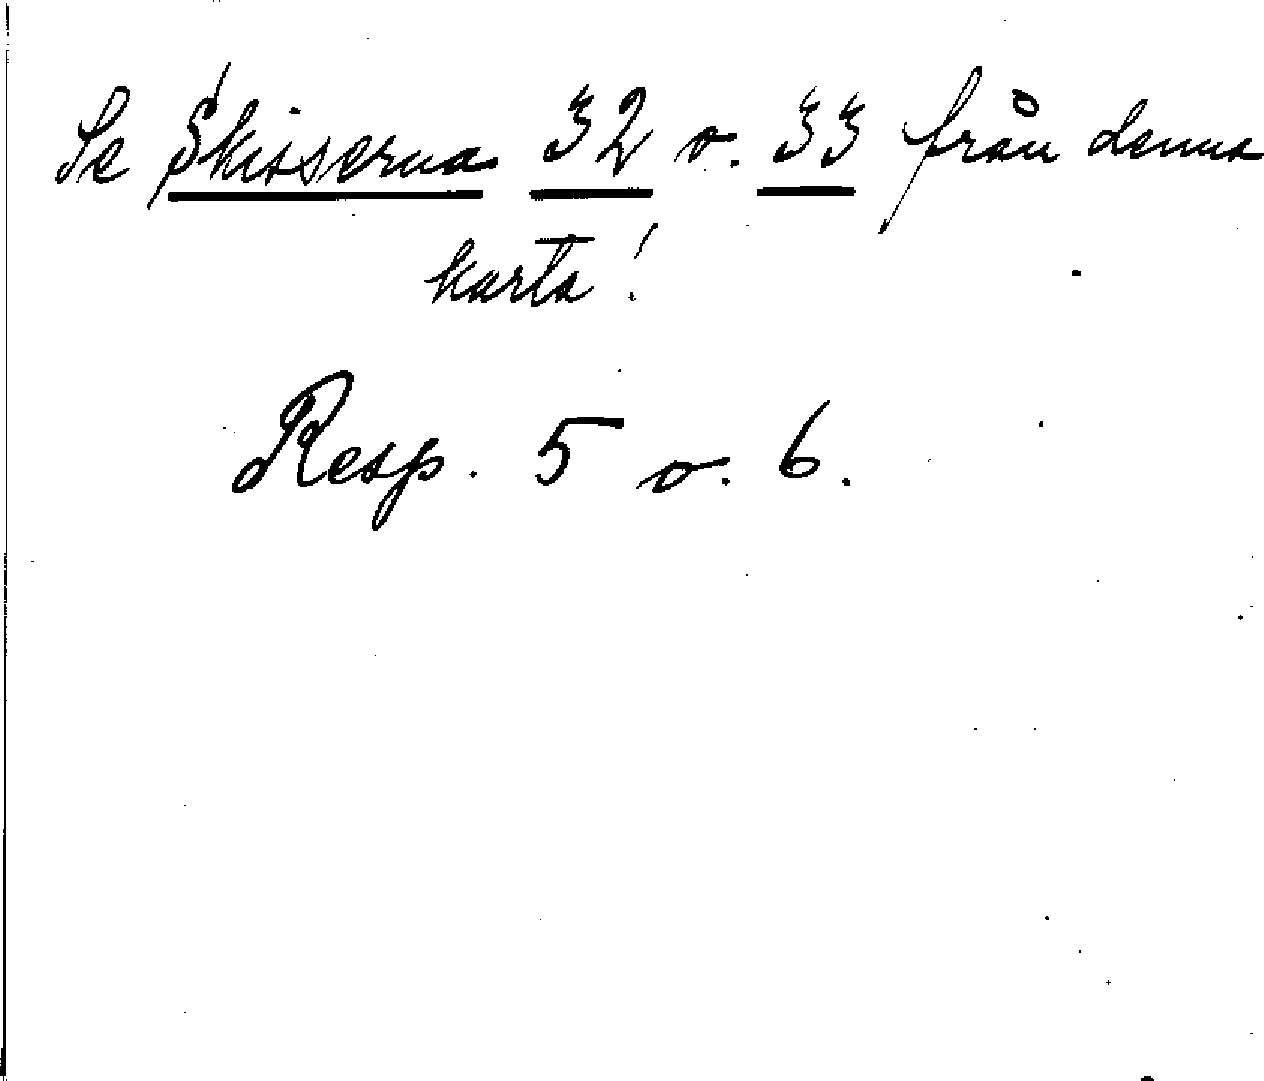 Se Skisserna 32 o. 33 från denna
karta!
Resp. 5 o. 6.